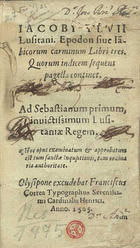 IACOBI TEVII
Lusitani. Epodon siue Ia-
bicorum carminum Libri tres.
Quorum indicem sequens
pagella continet.
Ad Sebastianum primum,
inuictissimum Lusi-
taniæ Regem.
Hoc opus examinatum & approbatum
est tum sanctæ Inquisitionis, tum
ria authoritate.
Olyssipone excudebat Franciscus
Correa Typographus Serenissimi
Cardinalis Henrici.
Anno. 1565.